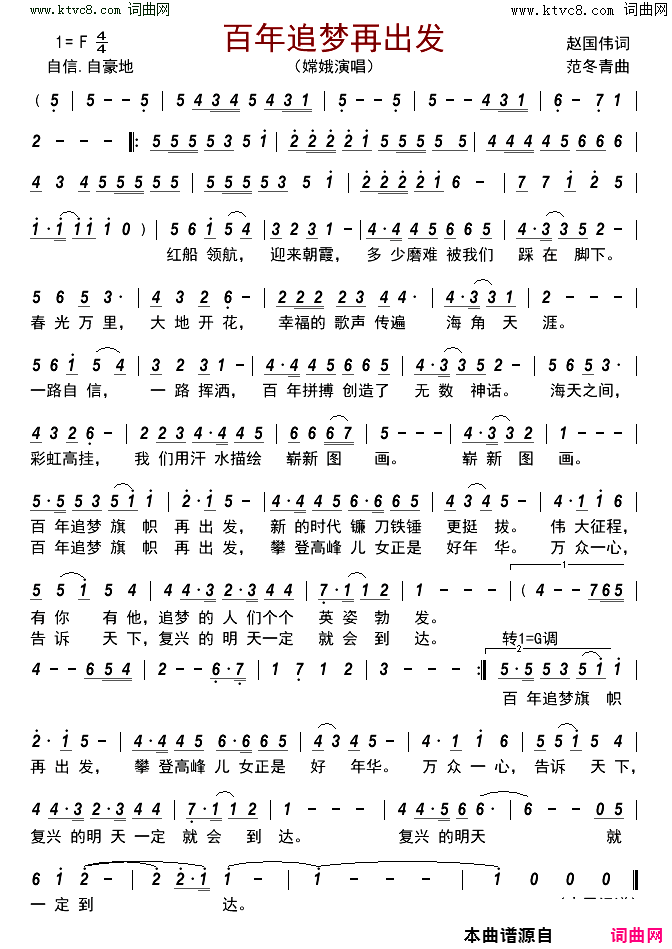 www.ktvc8.com 词曲网
www.ktvc8.com 词曲网
百年追梦再出发
1=F 4/4
赵国伟词
自信.自豪地
(嫦娥演唱)
范冬青曲
(5 5 - - 5 | 5 4 3 4 5 4 3 1 | 5 - - 5 | 5 - - 4 3 1 | 6 - 7 1
2 - - - ‖: 5 5 5 5 3 5 1 | 2 2 2 2 1 5 5 5 5 5 | 4 4 4 4 5 6 6 6
4 3 4 5 5 5 5 5 | 5 5 5 5 5 3 5 1 | 2 2 2 2 2 1 6 - | 7 7 1 2 5
1·1 1 1 1 1 0) | 5 6 1 5 4 | 3 2 3 1 | 4·4 4 5 6 6 5 | 4·3 3 5 2 -
红船 领航， 迎来朝霞， 多 少磨难 被我们 踩 在 脚下。
5 6 5 3· | 4 3 2 6 - | 2 2 2 2 2 3 4 4· | 4·3 3 3 1 | 2 - - -
春 光 万 里， 大 地 开 花， 幸福的 歌声 传遍 海 角 天 涯。
5 6 1 5 4 | 3 2 3 1 - | 4·4 4 5 6 6 5 | 4·3 3 5 2 - | 5 6 5 3·
一路自 信， 一 路 挥洒， 百 年拼搏 创造了 无 数 神话。 海天之间，
4 3 2 6 - | 2 2 3 4·4 4 5 | 6 6 6 7 | 5 - - - | 4·3 3 2 | 1 - - -
彩虹高 挂， 我 们用汗 水描绘 崭新 图 画。 崭 新 图 画。
5·5 5 3 5 1 1 | 2·1 5 - | 4·4 4 5 6·6 6 5 | 4 3 4 5 - | 4·1 6 1
百 年追梦 旗 帜 再 出 发， 新 的时代 镰 刀铁锤 更挺 拔。 伟 大征程，
百 年追梦 旗 帜 再 出 发， 攀 登高峰 儿 女正是 好年 华。 万 众一心，
5 5 1 5 4 | 4 4·3 2·3 4 4 | 7·1 1 2 | 1 - - - | (4 - - 7 6 5
有 你 有 他，追梦 的 人 们个个 英 姿 勃 发。
告 诉 天 下，复兴 的 明 天一定 就 会 到 达。 转1=G调
4 - - 6 5 4 | 2 - - 6·7 | 1 7 1 2 | 3 - - - :‖ 5·5 5 3 5 1 1
百 年追梦 旗 帜
2·1 5 - | 4·4 4 5 6·6 6 5 | 4 3 4 5 - | 4·1 6 1 | 5 5 1 5 4
再 出 发， 攀 登高峰 儿 女正是 好 年华。 万 众 一 心， 告诉 天 下，
4 4·3 2·3 4 4 | 7·1 1 2 | 1 - - - | 4 4·5 6 6 - | 6 - - 0 5
复兴 的明 天 一定 就 会 到 达。 复兴 的明天 就
6 1 2 - | - 2 2·1 | 1 - - - | 1 - - - | 1 0 0 0 ‖
一 定 到 达。
本曲谱源自 词曲网